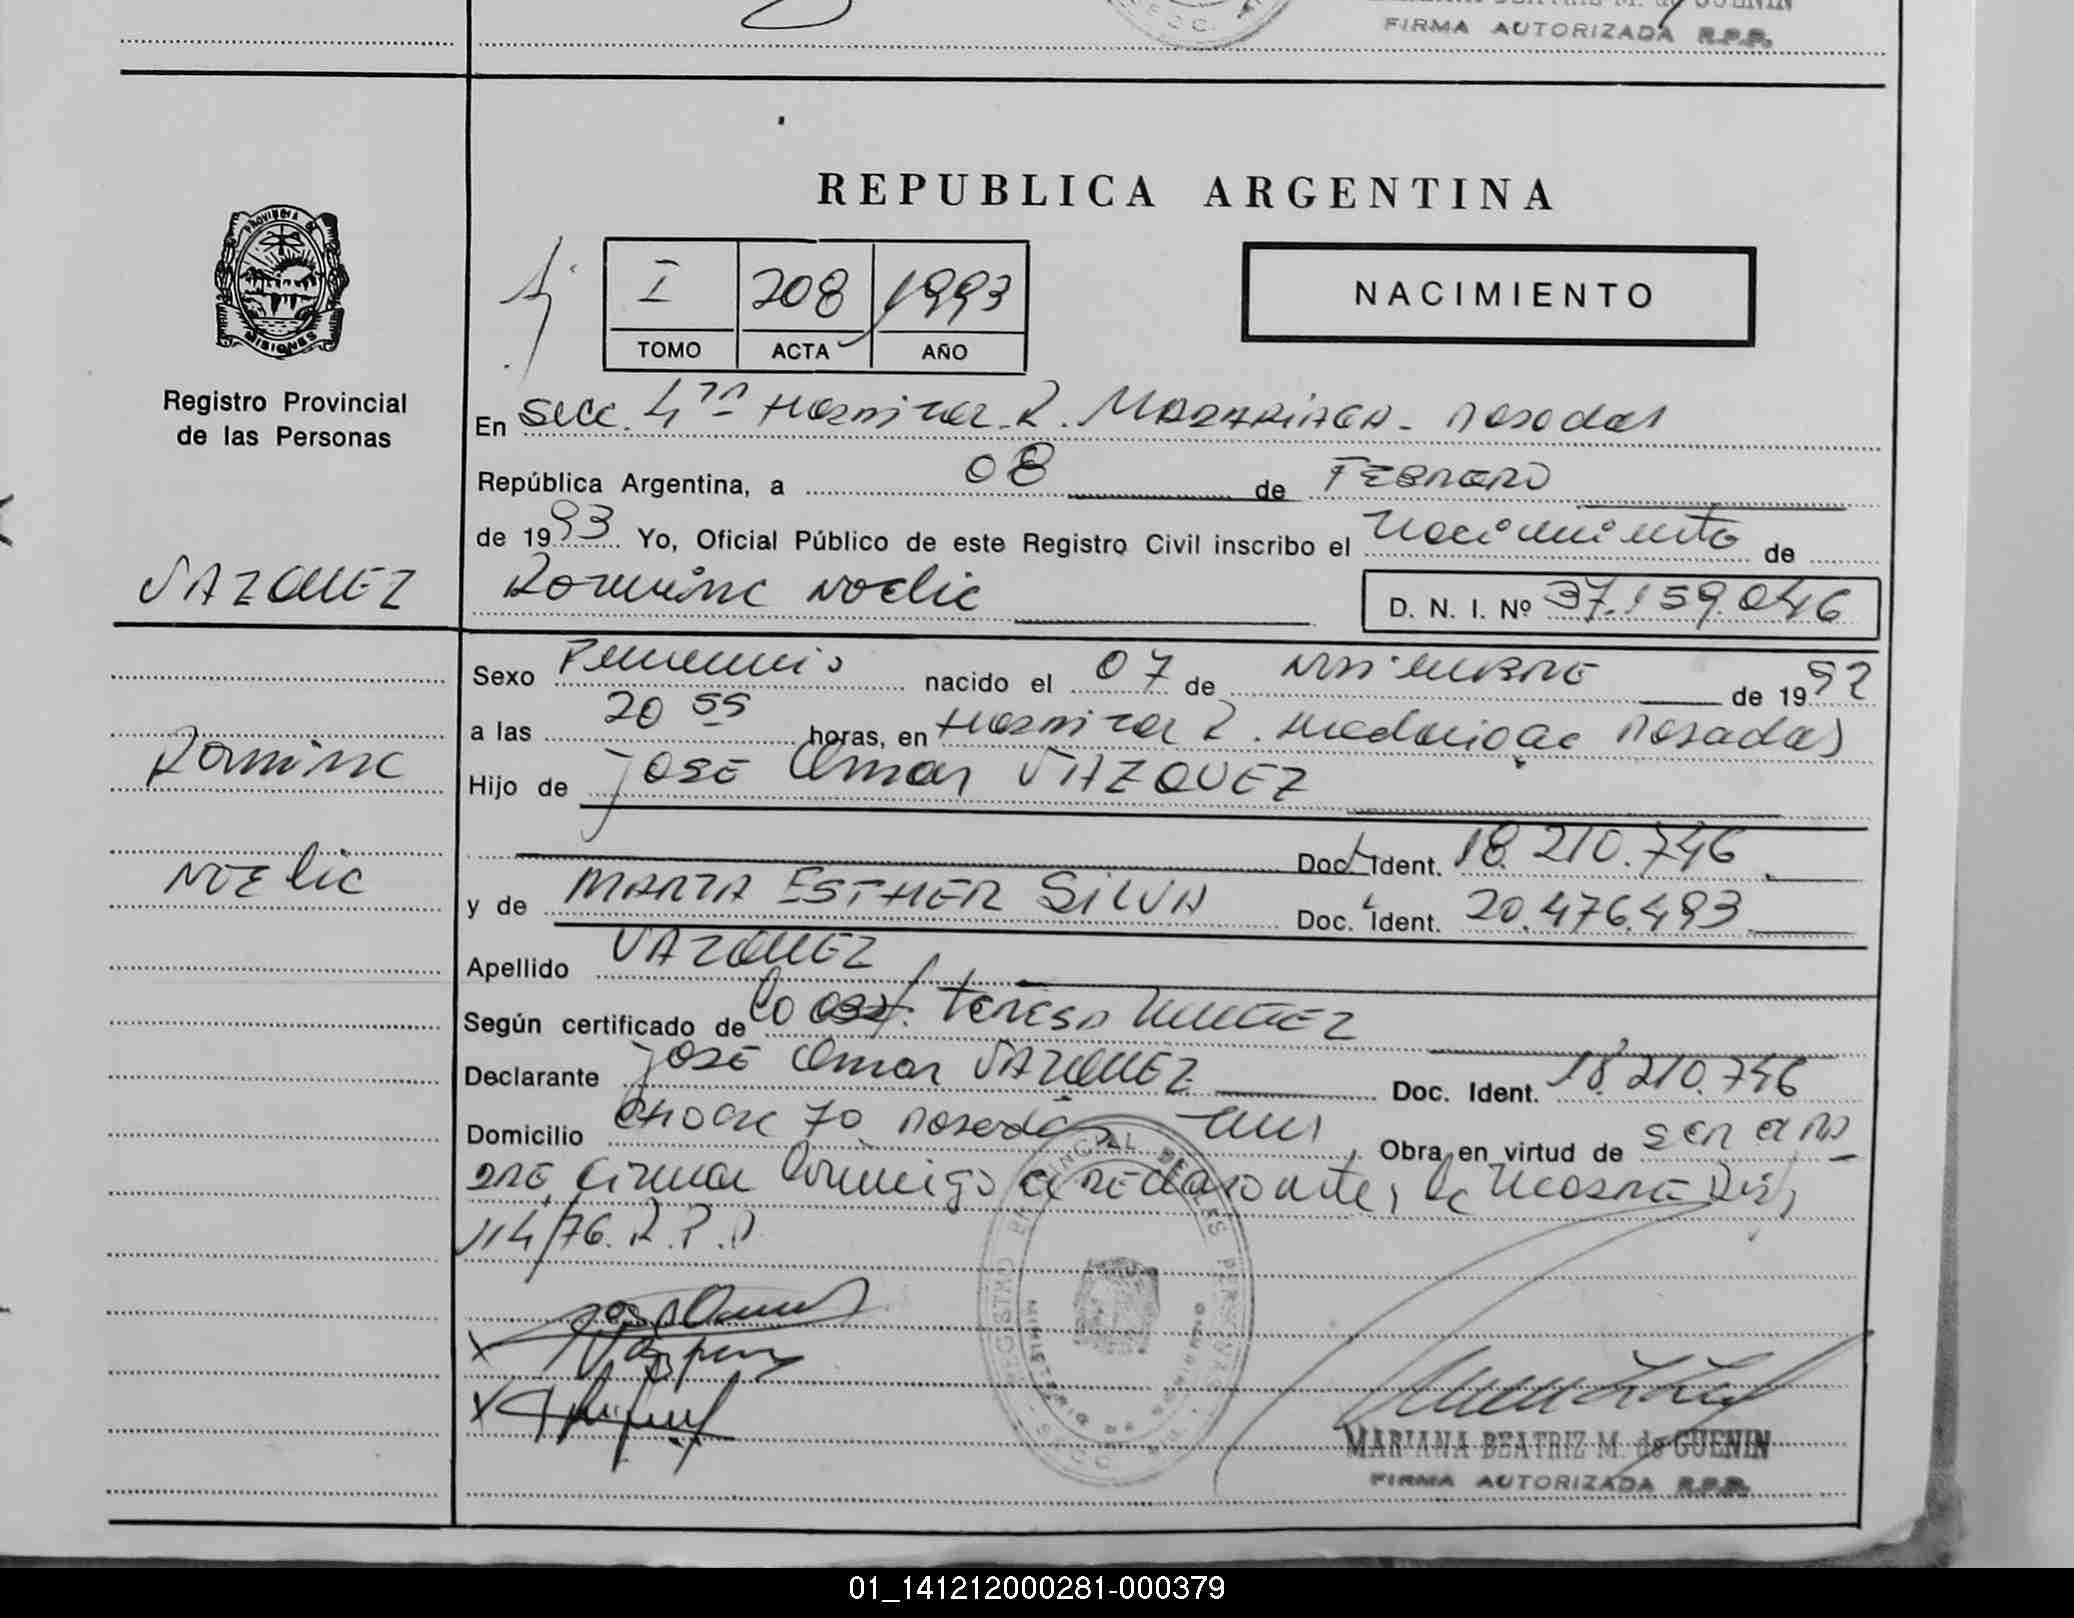 FIRMA AUTORIZADA R.P.P.
REPUBLICA ARGENTINA
PROVINCIA DE
MISIONES
Registro Provincial
de las Personas
I 208 1993
TOMO ACTA AÑO
NACIMIENTO
En Secc. 4ta Hospital R. Madariaga - Posadas
República Argentina, a 08 de FEBRERO
de 1993 Yo, Oficial Público de este Registro Civil inscribo el Nacimiento de
VAZQUEZ
Romina Noelia D. N. I. Nº 37.159.046
Sexo Femenino nacido el 07 de NOViEMBRE de 1992
a las 20 55 horas, en Hospital R. Madariaga Posadas
Romina
Hijo de JOSE Omar VAZQUEZ
Doc. Ident. 18.210.746
NOElia
y de MARTA ESTHER SiLVA Doc. Ident. 20.476.493
Apellido VAZQUEZ
Según certificado de la obst. Teresa
Declarante JOSE Omar VAZQUEZ Doc. Ident. 18.210.746
Domicilio 70 Posadas Obra en virtud de SER
PADRE, firma conmigo el declarante, la madre Disp.
114/76. R.P.P.
REGISTRO PROVINCIAL DE LAS PERSONAS
MINISTERIO DE GOBIERNO
MARIANA BEATRIZ M. de GUENIN
FIRMA AUTORIZADA R.P.P.
01_141212000281-000379